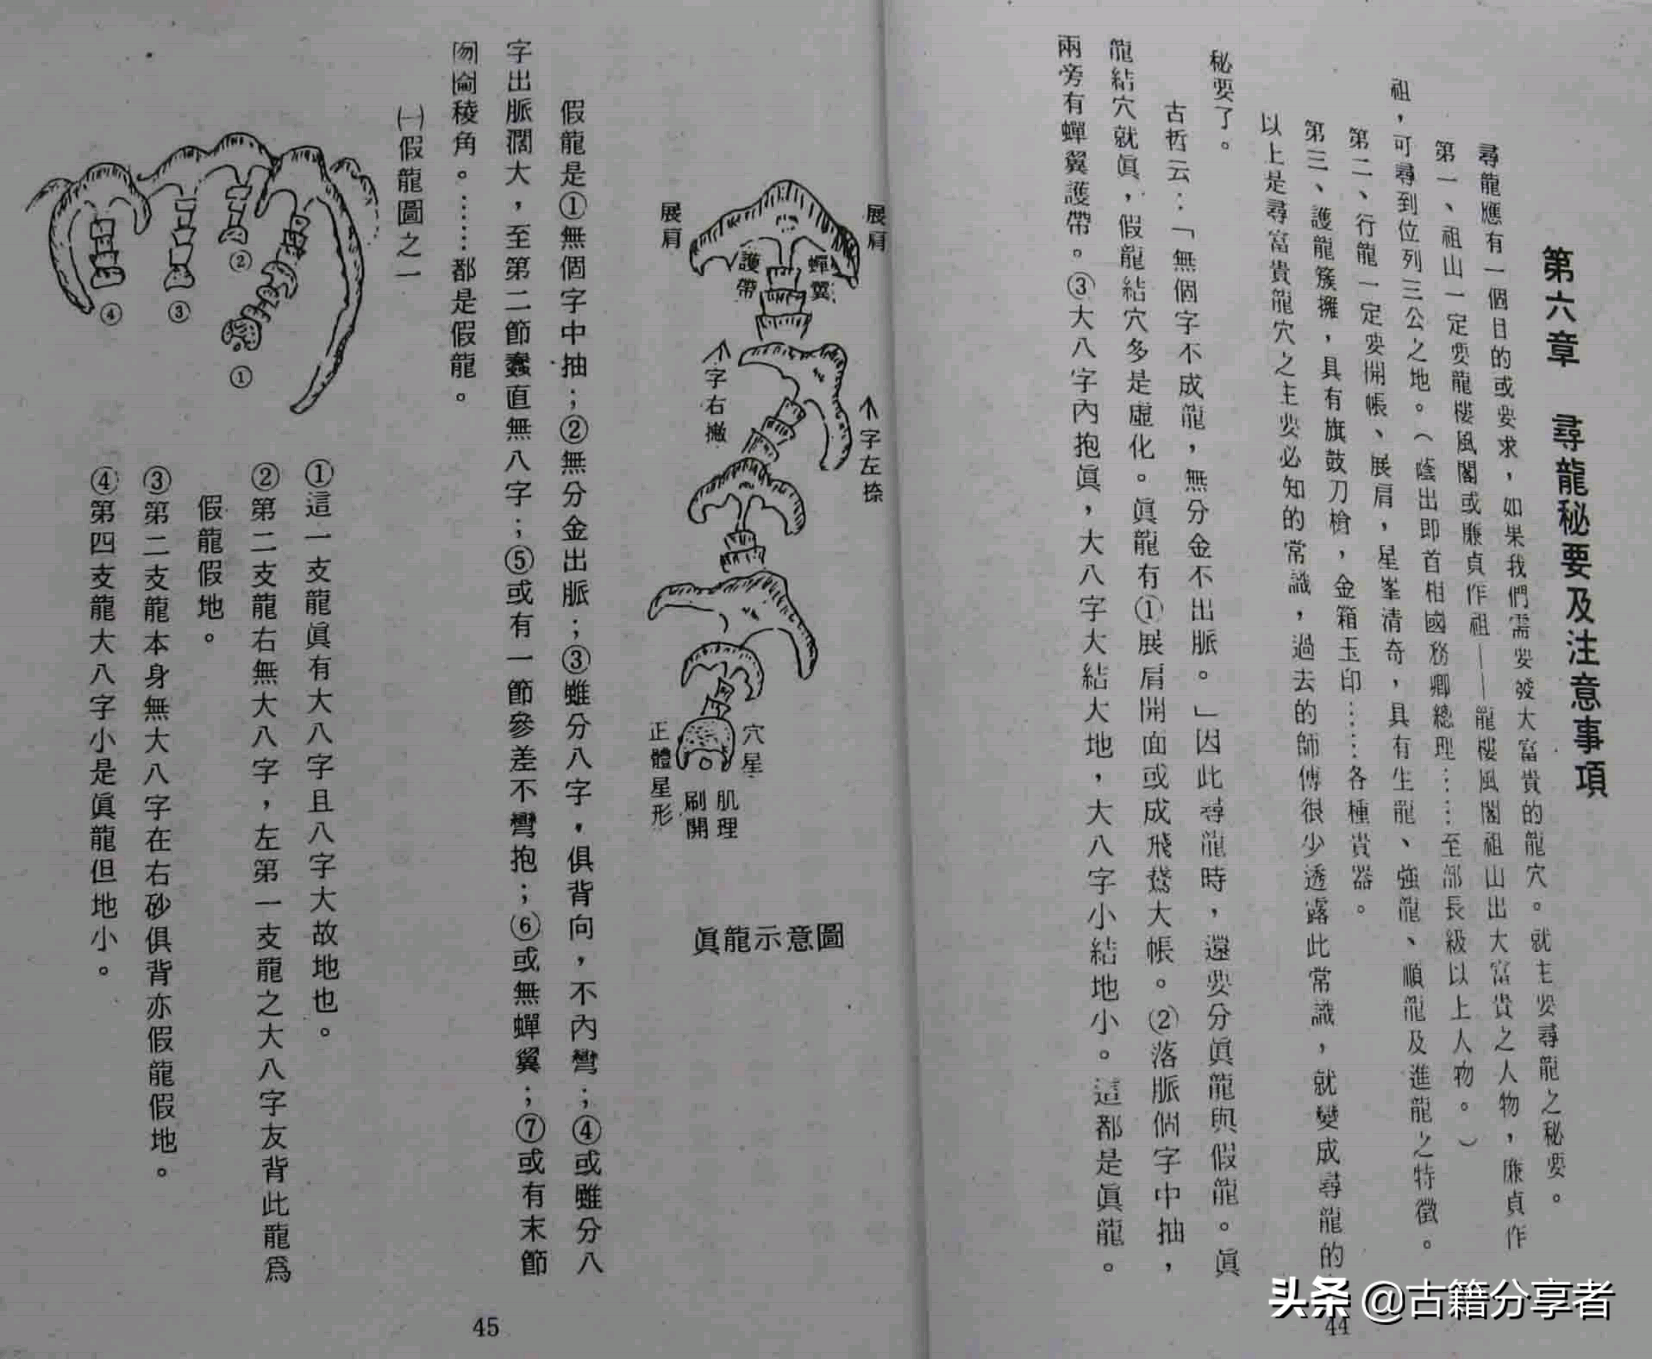 第六章　尋龍秘要及注意事項
尋龍應有一個目的或要求，如果我們需要發大富貴的龍穴。就主要尋龍之秘要。
第一、祖山一定要龍樓風閣或廉貞作祖——龍樓風閣祖山出大富貴之人物，廉貞作
祖，可尋到位列三公之地。（蔭出即首相國務卿總理……至部長級以上人物。）
第二、行龍一定要開帳、展肩，星峯清奇，具有生龍、強龍、順龍及進龍之特徵。
第三、護龍簇擁，具有旗鼓刀槍，金箱玉印……各種貴器。
以上是尋富貴龍穴之主要必知的常識，過去的師傅很少透露此常識，就變成尋龍的
秘要了。
古哲云：「無個字不成龍，無分金不出脈。」因此尋龍時，還要分眞龍與假龍。眞
龍結穴就眞，假龍結穴多是虛化。眞龍有①展肩開面或成飛鵞大帳。②落脈個字中抽，
兩旁有蟬翼護帶。③大八字內抱眞，大八字大結大地，大八字小結地小。這都是眞龍。
44
展肩
展肩
蟬翼
護帶
个字左捺
个字右撇
穴星
正體星形
肌理
刷開
眞龍示意圖
假龍是①無個字中抽；②無分金出脈；③雖分八字，俱背向，不內彎；④或雖分八
字出脈濶大，至第二節蠢直無八字；⑤或有一節參差不彎抱；⑥或無蟬翼；⑦或有末節
囫圇稜角。……都是假龍。
㈠假龍圖之一
①
②
③
④
①這一支龍眞有大八字且八字大故地也。
②第二支龍右無大八字，左第一支龍之大八字友背此龍爲
假龍假地。
③第二支龍本身無大八字在右砂俱背亦假龍假地。
④第四支龍大八字小是眞龍但地小。
45
头条 @古籍分享者